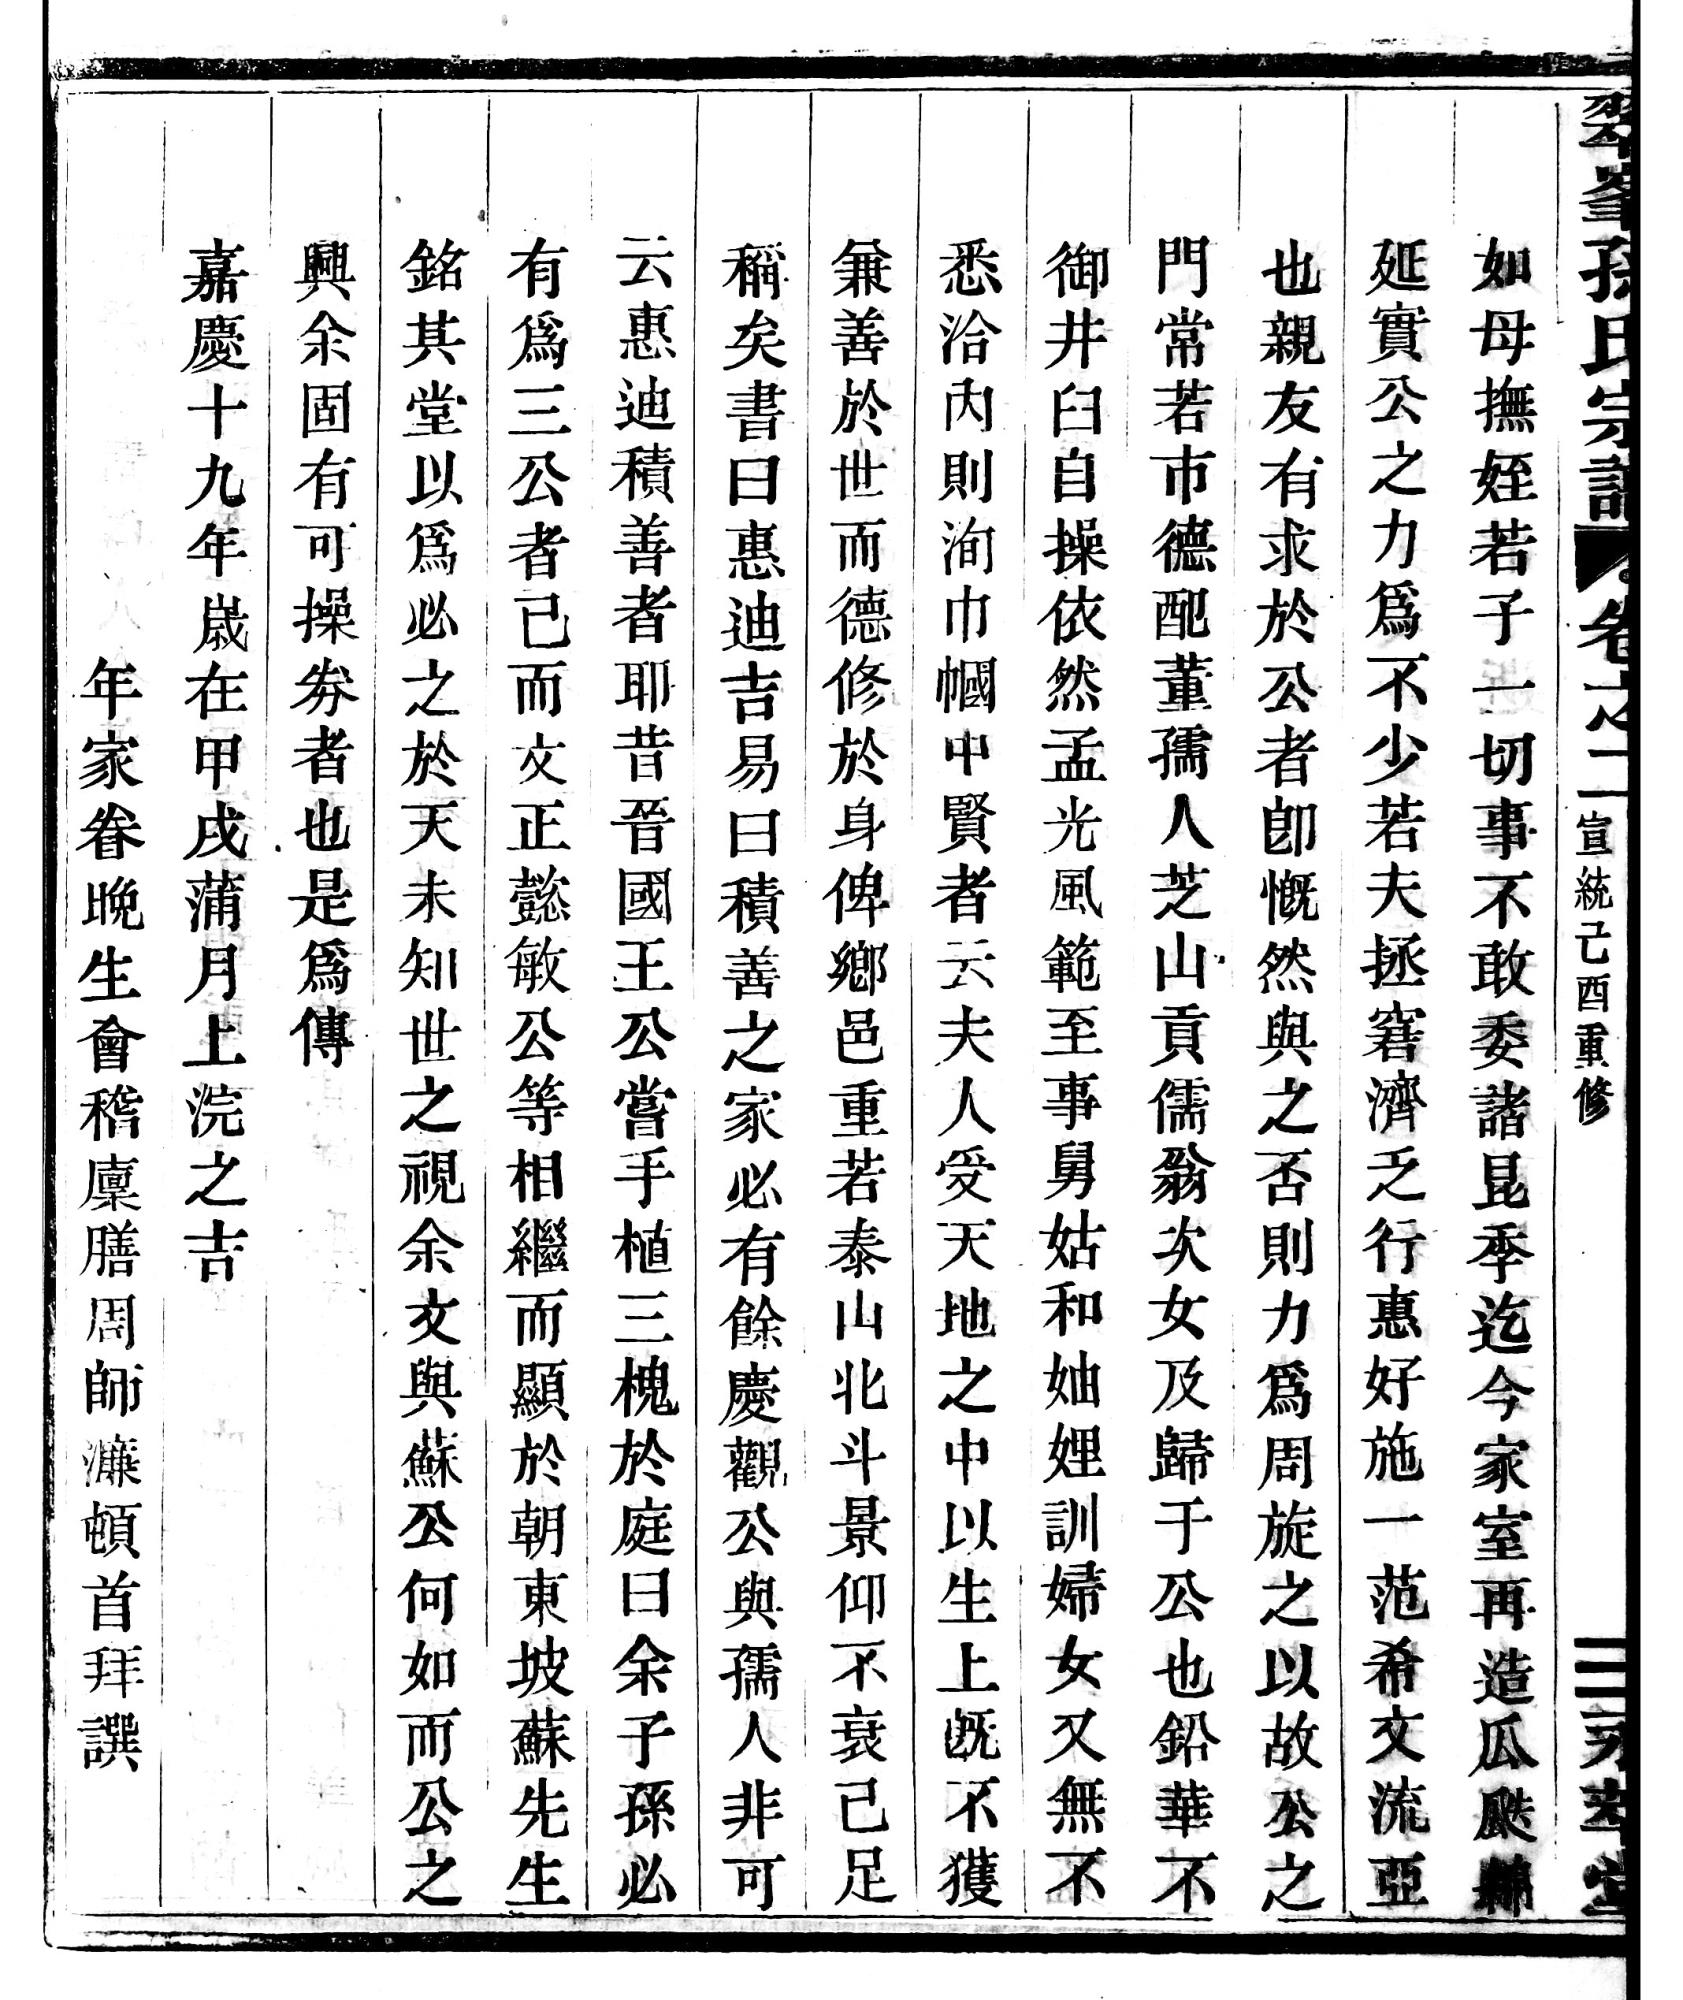 翠峯孫氏宗譜 卷之二 宣統己酉重修 三 永萃堂
如母撫姪若子一切事不敢委諸昆季迄今家室再造瓜瓞緜
延實公之力爲不少若夫拯窘濟乏行惠好施一范希文流亞
也親友有求於公者卽慨然與之否則力爲周旋之以故公之
門常若市德配董孺人芝山貢儒翁次女及歸于公也鉛華不
御井臼自操依然孟光風範至事舅姑和妯娌訓婦女又無不
悉洽內則洵巾幗中賢者云夫人受天地之中以生上旣不獲
兼善於世而德修於身俾鄉邑重若泰山北斗景仰不衰已足
稱矣書曰惠迪吉易曰積善之家必有餘慶觀公與孺人非可
云惠迪積善者耶昔晉國王公嘗手植三槐於庭曰余子孫必
有爲三公者已而文正懿敏公等相繼而顯於朝東坡蘇先生
銘其堂以爲必之於天未知世之視余文與蘇公何如而公之
興余固有可操劵者也是爲傳
嘉慶十九年歲在甲戌蒲月上浣之吉
年家眷晚生會稽廩膳周師濂頓首拜譔